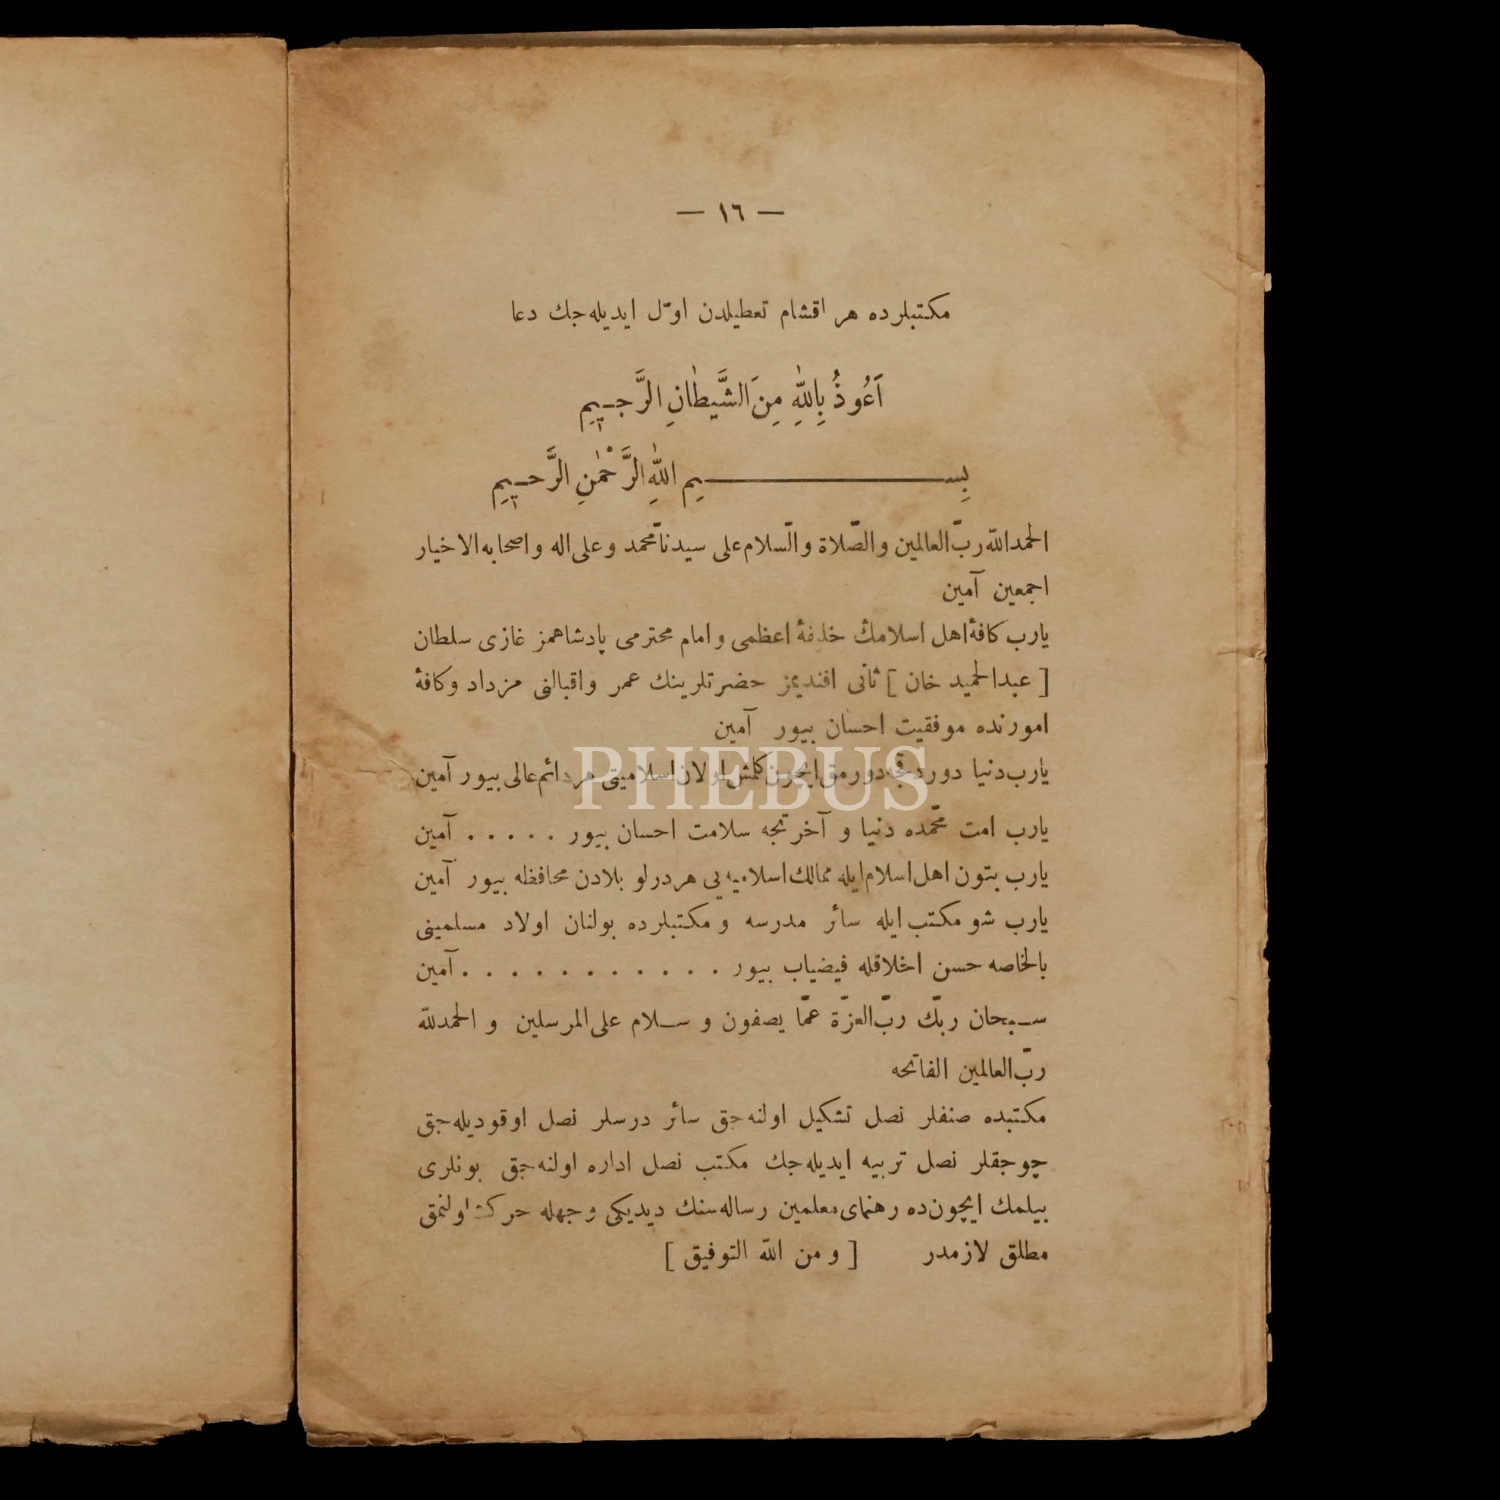 — ١٦ —
مكتبلرده هر اقشام تعطيلدن اوّل ايديله‌جك دعا
اَعُوذُ بِاللّٰهِ مِنَ الشَّيْطٰانِ الرَّجِيمِ
بِسْـــــــــــيمِ اللّٰهِ الرَّحْمٰنِ الرَّحِيمِ
الحمدالله ربّ العالمين والصّلاة والسّلام على سيدنا محمّد وعلى اله واصحابه الاخيار
اجمعين آمين
يارب كافۀ اهل اسلامك خليفۀ اعظمى و امام محترمى پادشاهمز غازى سلطان
[ عبدالحميد خان ] ثانى افنديمز حضرتلرينك عمر واقبالنى مزداد وكافۀ
امورنده موفقيت احسان بيور آمين
يارب دنيا دوردقجه دورمق ايچون كلمش اولان اسلاميتى هردائم عالى بيور آمين
يارب امت محمّده دنيا و آخرتجه سلامت احسان بيور . . . . . آمين
يارب بتون اهل اسلام ايله ممالك اسلاميه‌يى هردرلو بلادن محافظه بيور آمين
يارب شو مكتب ايله سائر مدرسه و مكتبلرده بولنان اولاد مسلمينى
بالخاصه حسن اخلاقله فيضياب بيور . . . . . . . . . . . آمين
سـبحان ربّك ربّ العزّة عمّا يصفون و سـلام على المرسلين و الحمدلله
ربّ العالمين الفاتحه
مكتبده صنفلر نصل تشكيل اولنه‌جق سائر درسلر نصل اوقوديله‌جق
چوجقلر نصل تربيه ايديله‌جك مكتب نصل اداره اولنه‌جق بونلرى
بيلمك ايچون‌ده رهنماى معلمين رساله‌سنك ديديكى وجهله حركت اولنمق
مطلق لازمدر [ و من الله التوفيق ]
PHEBUS